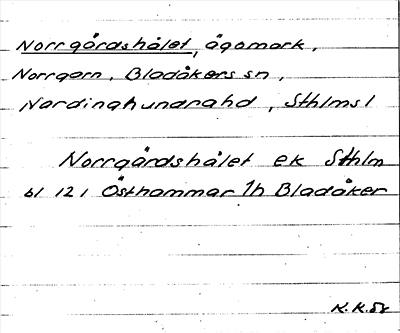 Norrgårdshålet, ägomark,
Norrgarn, Bladåkers sn,
Närdinghundrahd, Sthlms l
Norrgårdshålet ek Sthlm
bl 121 Östhammar 1h Bladåker
K.K.58